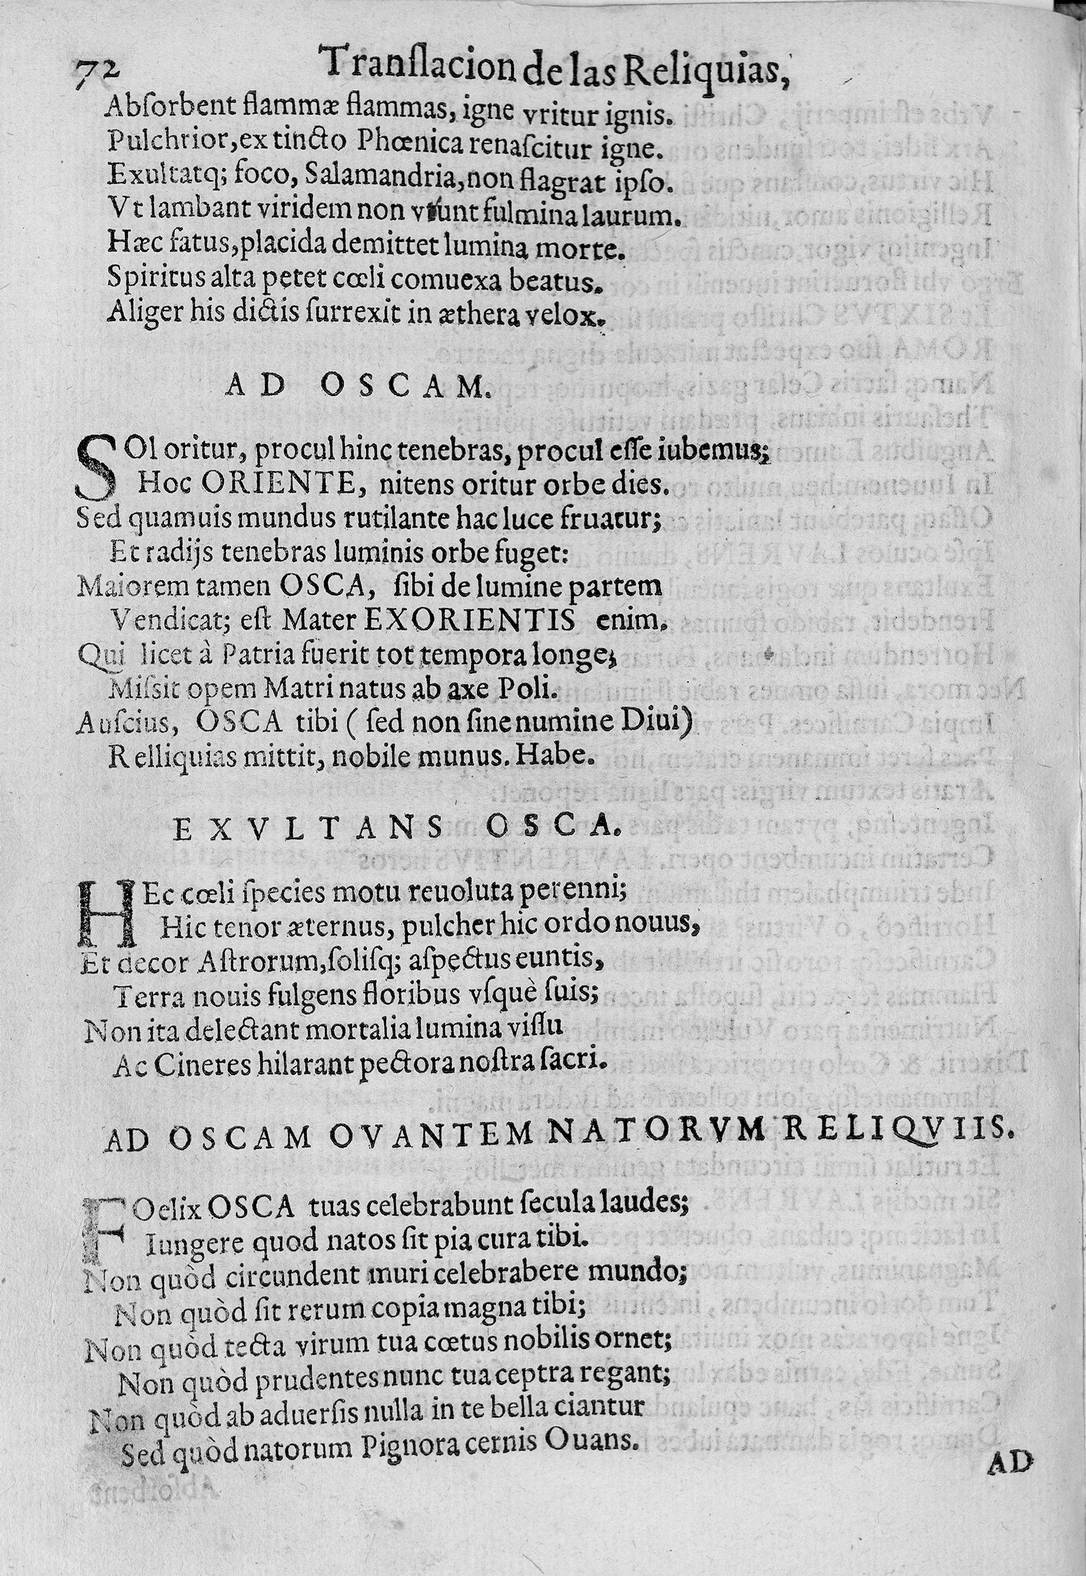 72 Tranſlacion de las Reliquias,
Abſorbent flammæ flammas, igne vritur ignis.
Pulchrior, extincto Phœnica renaſcitur igne.
Exultatq; foco, Salamandria, non flagrat ipſo.
Vt lambant viridem non vrunt fulmina laurum.
Hæc fatus, placida demittet lumina morte.
Spiritus alta petet cœli comuexa beatus.
Aliger his dictis ſurrexit in æthera velox.
AD OSCAM.
SOl oritur, procul hinc tenebras, procul eſſe iubemus;
Hoc ORIENTE, nitens oritur orbe dies.
Sed quamuis mundus rutilante hac luce fruatur;
Et radijs tenebras luminis orbe fuget:
Maiorem tamen OSCA, ſibi de lumine partem
Vendicat; eſt Mater EXORIENTIS enim.
Qui licet à Patria fuerit tot tempora longe;
Miſsit opem Matri natus ab axe Poli.
Auſcius, OSCA tibi (ſed non ſine numine Diui)
Relliquias mittit, nobile munus. Habe.
EXVLTANS OSCA.
HEc cœli ſpecies motu reuoluta perenni;
Hic tenor æternus, pulcher hic ordo nouus,
Et decor Aſtrorum, ſoliſq; aſpectus euntis,
Terra nouis fulgens floribus vſquè ſuis;
Non ita delectant mortalia lumina viſſu
Ac Cineres hilarant pectora noſtra ſacri.
AD OSCAM OVANTEM NATORVM RELIQVIIS.
FOelix OSCA tuas celebrabunt ſecula laudes;
Iungere quod natos ſit pia cura tibi.
Non quòd circundent muri celebrabere mundo;
Non quòd ſit rerum copia magna tibi;
Non quòd tecta virum tua cœtus nobilis ornet;
Non quòd prudentes nunc tua ceptra regant;
Non quòd ab aduerſis nulla in te bella ciantur
Sed quòd natorum Pignora cernis Ouans.
AD